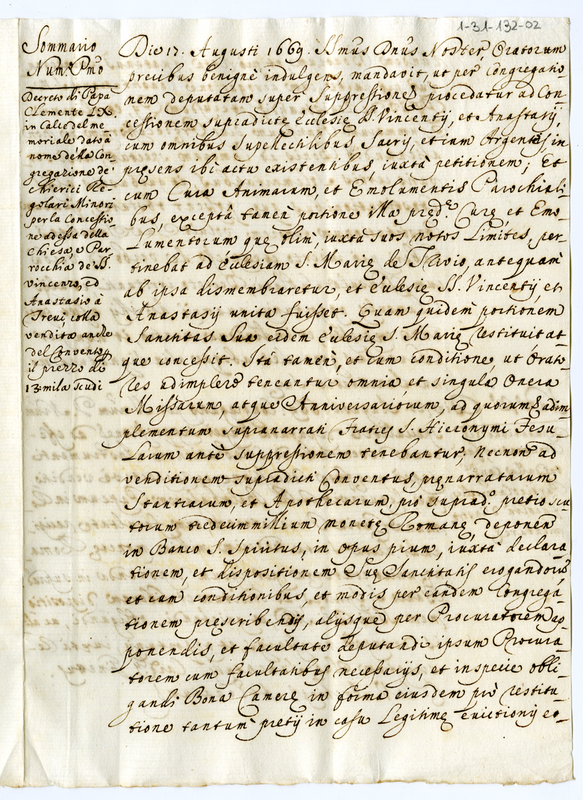 1-31-132-02
Sommario
Num.º Pmo
Decreto di Papa
Clemente IX.
in Calce del me
moriale dato à
nome della Con
gregazione de'
Chierici Re-
golari Minori
per la Concessio
ne ad essa della
Chiesa, e Par
rocchia de SS.
Vincenzo, ed
Anastasio à
Trevi, colla
vendita anche
del Convento per
il prezzo di
13 mila scudi
Die 17. Augusti 1669. SSmus Dnus Noster Oratorum
precibus benignè indulgens, mandavit, ut per Congregatio
nem deputatam super Suppressione procedatur ad Con
cessionem supradictę Ecclesię SS. Vincentij, et Anastasij,
cum omnibus Supellectilibus Sacris, etiam Argenteis in
pręsens ibi actu existentibus, iuxtà petitionem; Et
cum Cura Animarum, et Emolumentis Parochiali
bus, exceptâ tamen portione illa pred.ę Curę et Emo
lumentorum quę olim, iuxtà suos notos Limites, per
tinebat ad Ecclesiam S. Marię de Trivio, antequam
ab ipsa dismembraretur, et Ecclesię SS. Vincentij et
Anastasij unita fuisset. Quam quidem portionem
Sanctitas Sua eidem Ecclesię S. Marię restituit at
que concessit. Ità tamen, et cum conditione, ut Orato
res adimplere teneantur omnia et singula Onera
Missarum, atque Anniversariorum, ad quorum adim
plementum supranarrati Fratres S. Hieronymi Fesu
larum antè Suppressionem tenebantur; Necnon ad
venditionem supradicti Conventus, pręnarratarum
Stantiarum, et Apothecarum, pro suprad.º pretio scu
torum tredecim millium monetę Romanę, deponen
in Banco S. Spiritus, in opus pium, iuxtà declara
tionem, et dispositionem Suę Sanctitatis erogandorum
et cum conditionibus, et modis per eandem Congrega
tionem prescribendis, alijsque per Procuratorem ap
ponendis, et facultate deputandi ipsum Procura
torem cum facultatibus necessarijs, et in specie obli
gandi Bona Camerę in forma eiusdem pro restitu
tione tantum pretij in casu Legitimę evictionis eo-